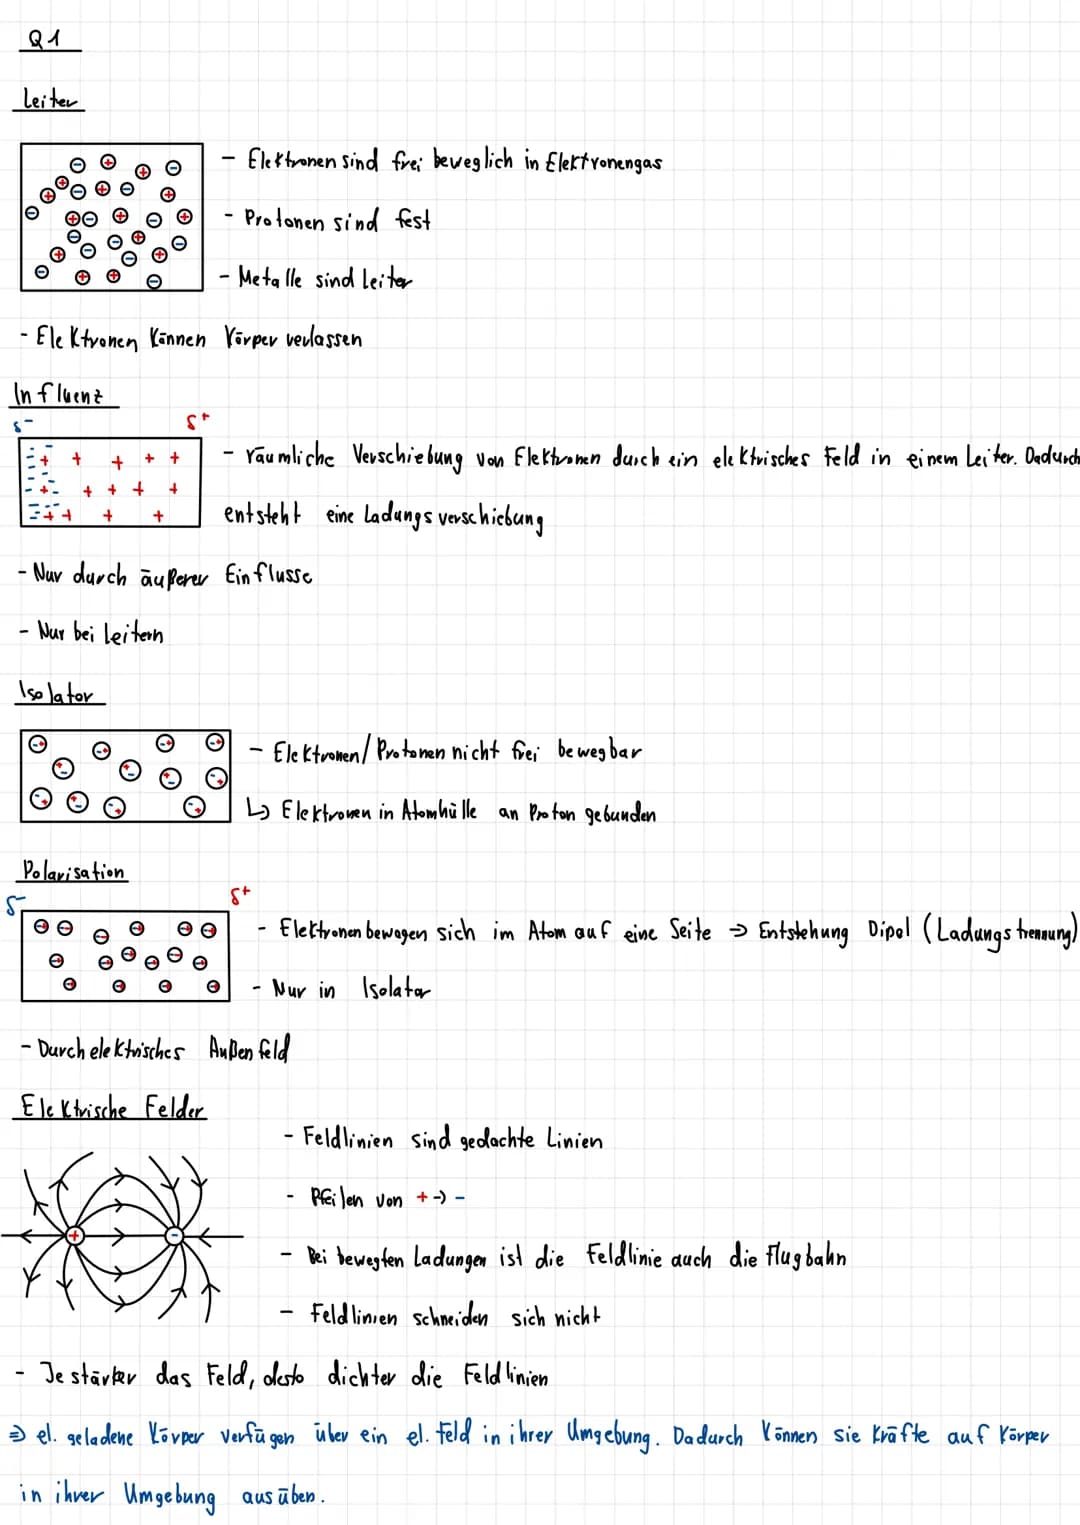 Q1
Leiter
- Elektronen sind frei beweglich in Elektronengas
- Protonen sind fest
- Metalle sind Leiter
- Elektronen können Körper verlassen
Influenz
δ- δ+
- räumliche Verschiebung von Elektronen durch ein elektrisches Feld in einem Leiter. Dadurch
entsteht eine Ladungsverschiebung
- Nur durch äußerer Einflusse
- Nur bei Leitern
Isolator
- Elektronen/Protonen nicht frei bewegbar
↳ Elektronen in Atomhülle an Proton gebunden
Polarisation
δ- δ+
- Elektronen bewagen sich im Atom auf eine Seite → Entstehung Dipol (Ladungstrennung)
- Nur in Isolator
- Durch elektrisches Außenfeld
Elektrische Felder
- Feldlinien sind gedachte Linien
- Pfeilen von + → -
- Bei bewegten Ladungen ist die Feldlinie auch die Flugbahn
- Feldlinien schneiden sich nicht
- Je stärker das Feld, desto dichter die Feldlinien
⇒ el. geladene Körper verfügen über ein el. Feld in ihrer Umgebung. Dadurch können sie Kräfte auf Körper
in ihrer Umgebung ausüben.